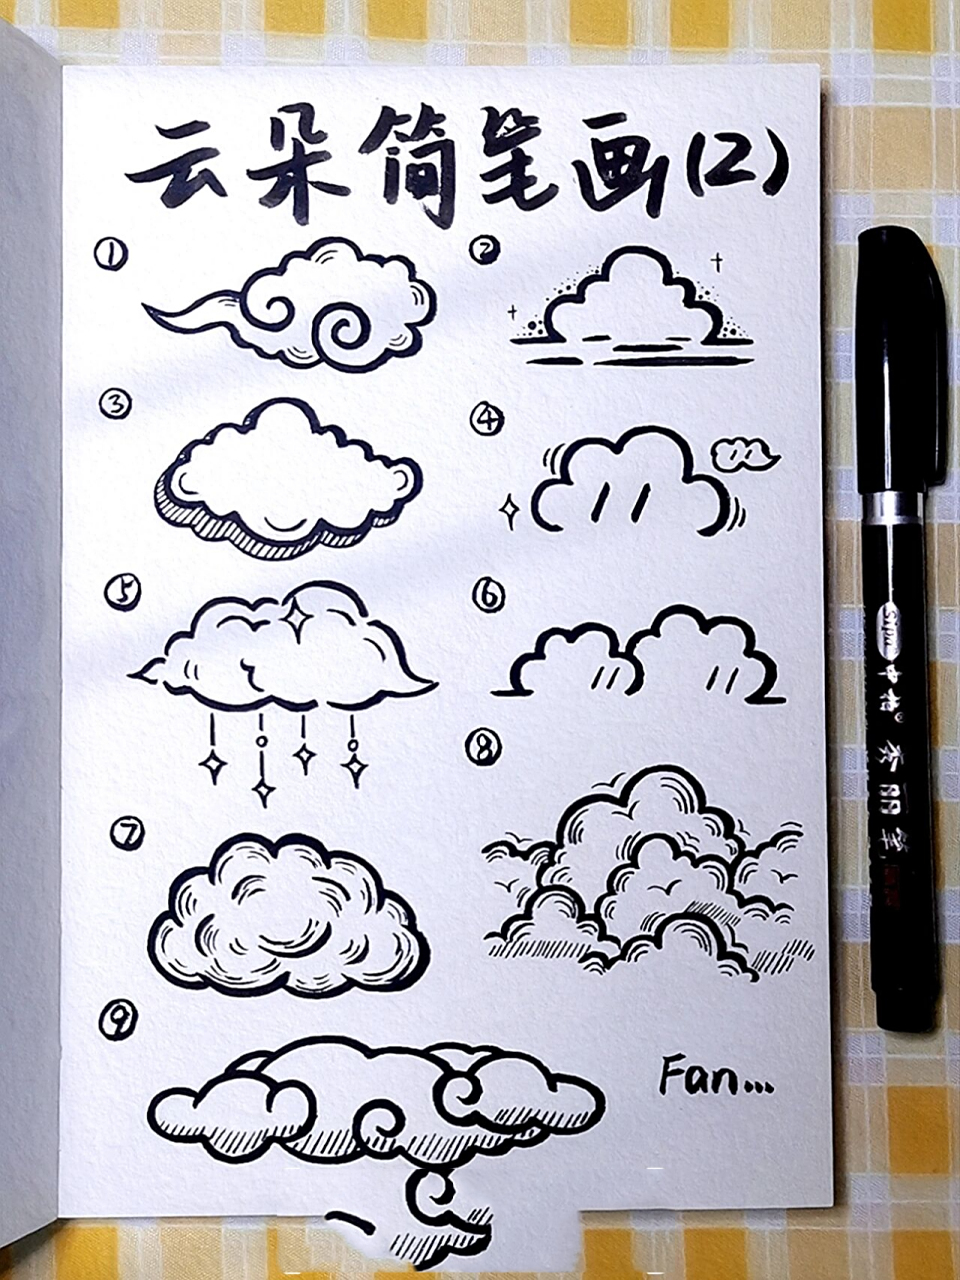 云朵简笔画(2)
①
②
③
④
⑤
⑥
⑦
⑧
⑨
Fan...
中柏
秀丽笔